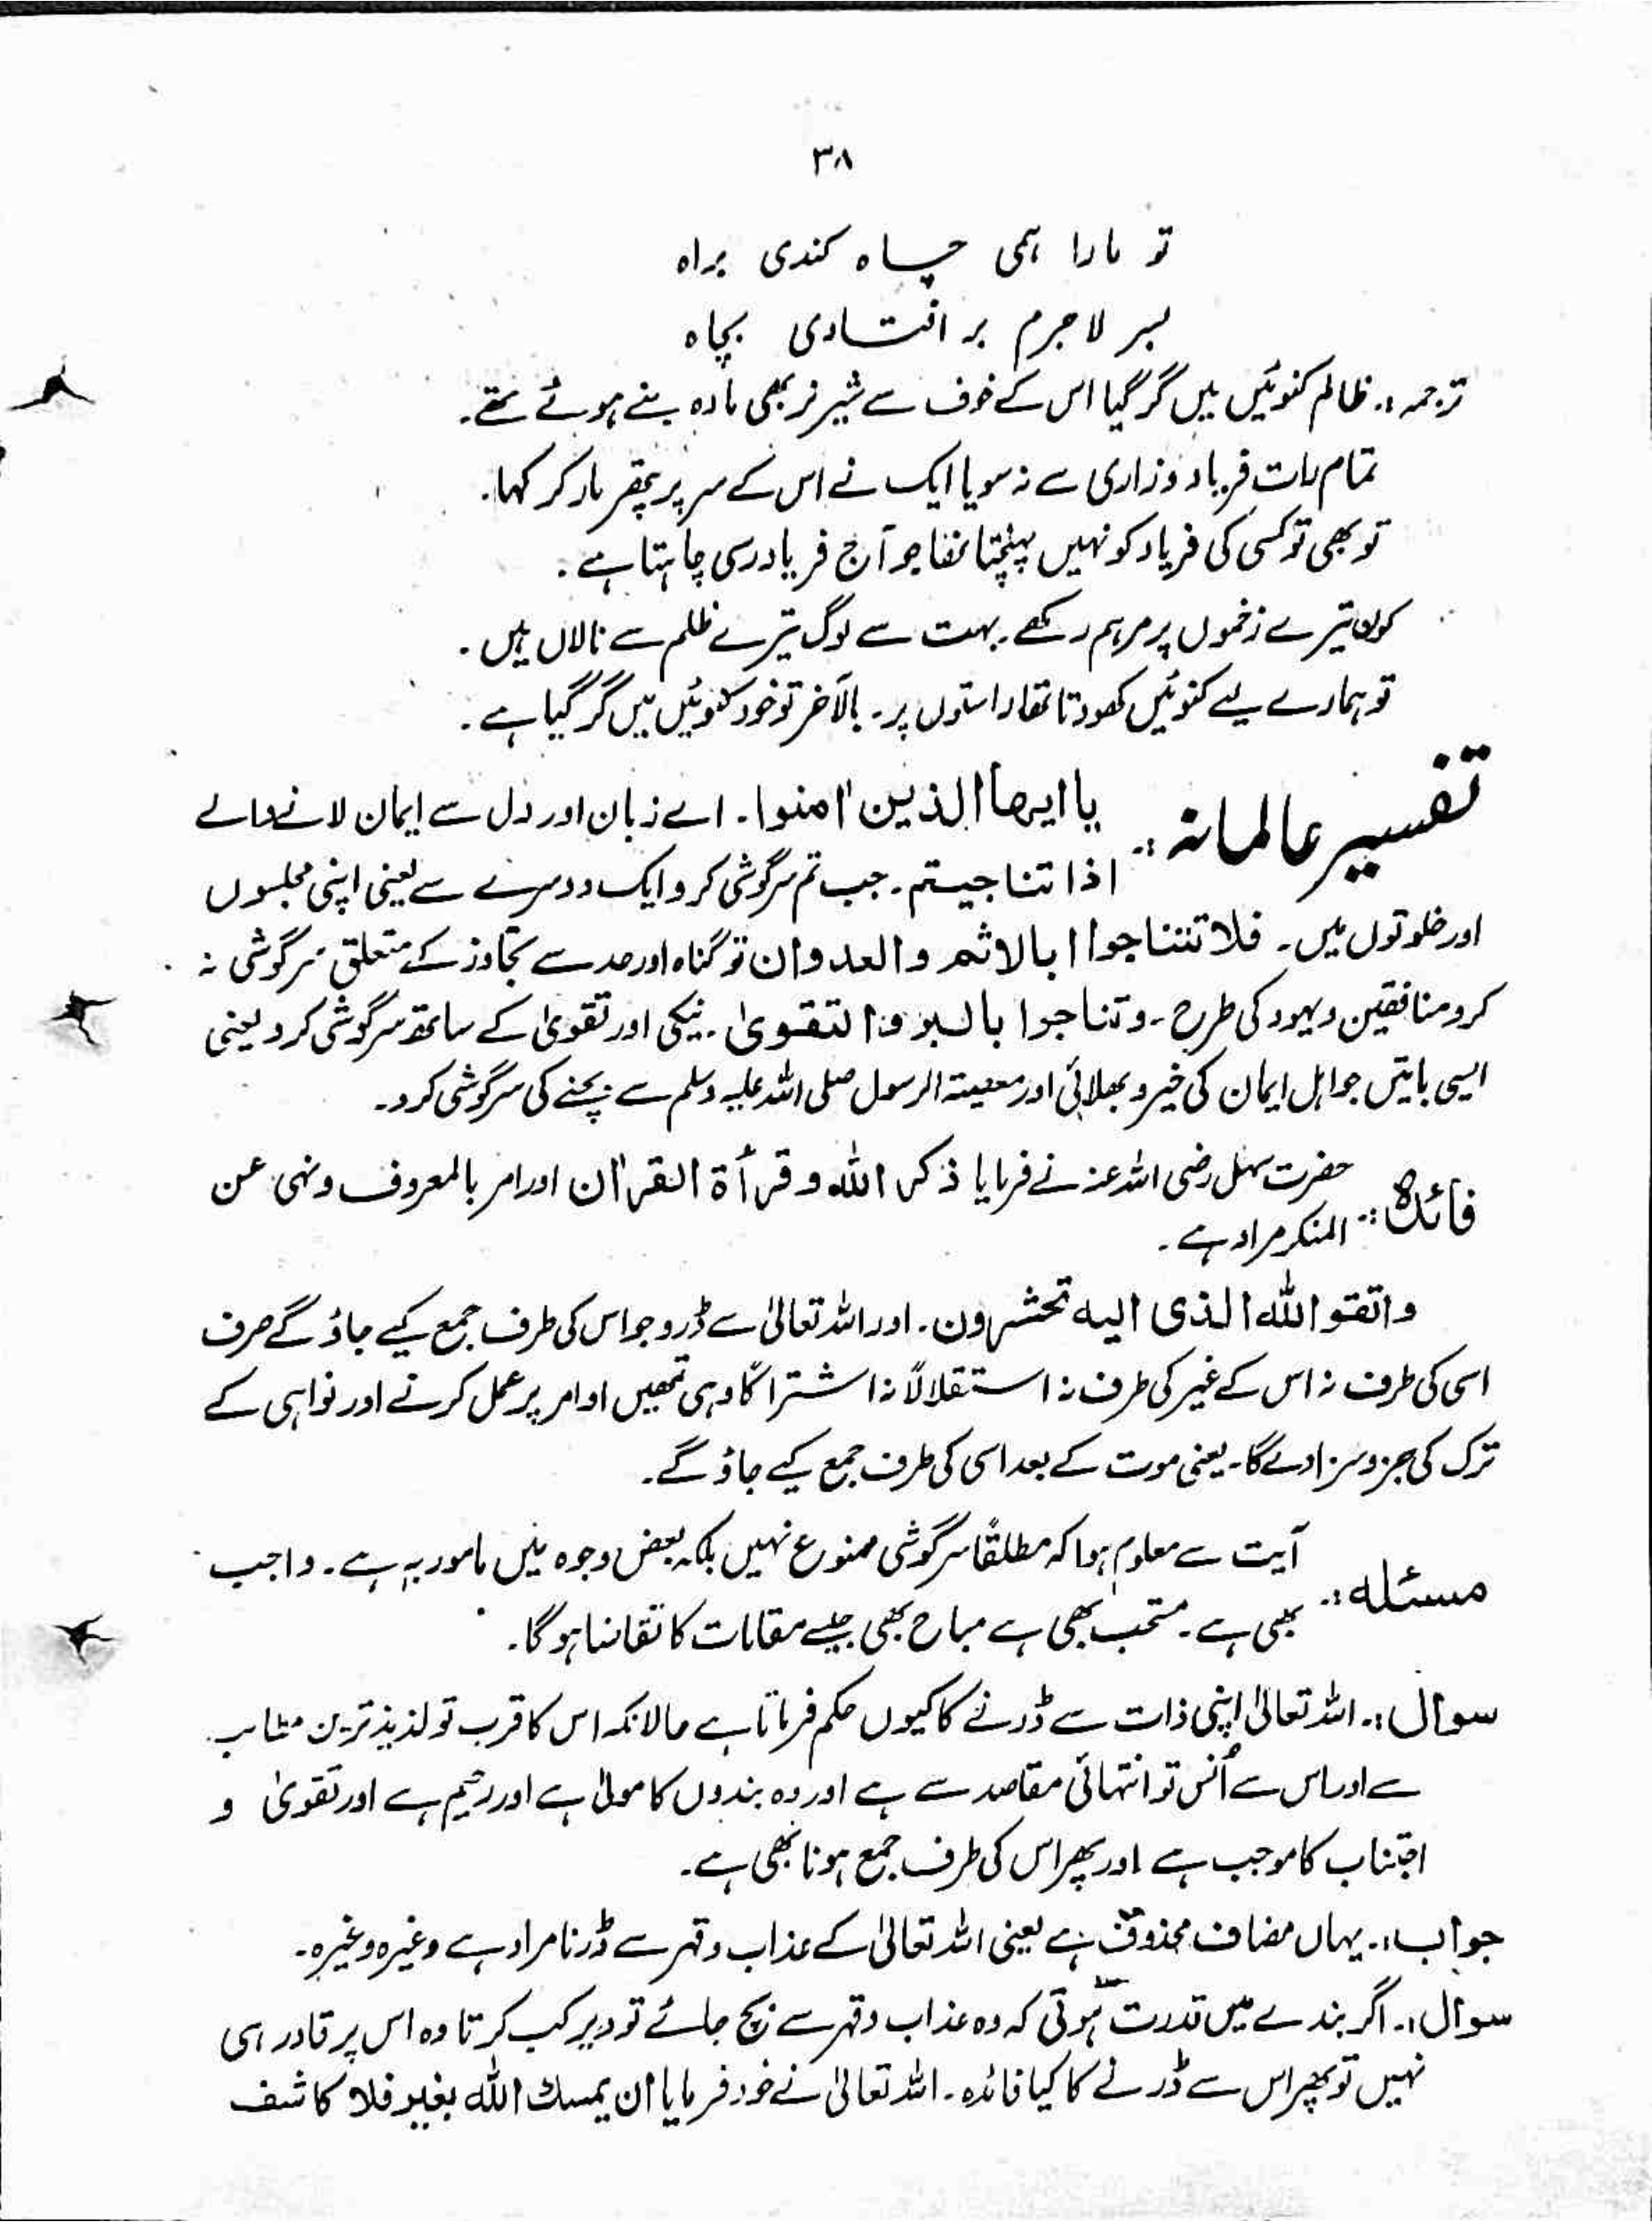 ۳۸
تو مارا ہمی چاہ کندی براہ
بسر لاجرم بر افتادی بچاہ
ترجمہ :۔ ظالم کنوئیں میں گر گیا اس کے خوف سے شیر نر بھی مادہ بنے ہوئے تھے۔
تمام رات فریاد و زاری سے نہ سویا ایک نے اس کے سر پر پتھر مار کر کہا۔
تو بھی تو کسی کی فریاد کو نہیں پہنچتا تھا جو آج فریاد رسی چاہتا ہے۔
کون تیرے زخموں پر مرہم رکھے۔ بہت سے لوگ تیرے ظلم سے نالاں ہیں۔
تو ہمارے لیے کنوئیں کھودتا تھا راستوں پر۔ بالآخر تو خود کنوئیں میں گر گیا ہے۔
تفسیر عالمانہ :۔ یا ایھا الذین اٰمنوا۔ اے زبان اور دل سے ایمان لانے والے
اذا تناجیتم۔ جب تم سرگوشی کرو ایک دوسرے سے یعنی اپنی مجلسوں
اور خلوتوں میں۔ فلا تتناجوا ابالاثم والعدوان تو گناہ اور حد سے تجاوز کے متعلق سرگوشی نہ
کرو منافقین و یہود کی طرح۔ وتناجوا بالبر والتقویٰ۔ نیکی اور تقویٰ کے ساتھ سرگوشی کرو یعنی
ایسی باتیں جو اہل ایمان کی خیر و بھلائی اور معصیۃ الرسول صلی اللہ علیہ وسلم سے بچنے کی سرگوشی کرو۔
فائدہ :۔ حضرت سہل رضی اللہ عنہ نے فرمایا ذکر اللہ و قرأۃ القراٰن اور امر بالمعروف و نہی عن
المنکر مراد ہے۔
واتقو اللہ الذی الیہ تحشرون۔ اور اللہ تعالیٰ سے ڈرو جو اس کی طرف جمع کیے جاؤ گے صرف
اسی کی طرف نہ اس کے غیر کی طرف نہ استقلالاً نہ اشتراکاً وہی تمھیں اوامر پر عمل کرنے اور نواہی کے
ترک کی جزو سزا دے گا۔ یعنی موت کے بعد اسی کی طرف جمع کیے جاؤ گے۔
مسئلہ :۔ آیت سے معلوم ہوا کہ مطلقاً سرگوشی ممنوع نہیں بلکہ بعض وجوہ میں مامور بہ ہے۔ واجب
بھی ہے۔ مستحب بھی ہے مباح بھی جیسے مقامات کا تقاضا ہوگا۔
سوال :۔ اللہ تعالیٰ اپنی ذات سے ڈرنے کا کیوں حکم فرماتا ہے حالانکہ اس کا قرب تو لذیذ ترین مطالب
سے اور اس سے اُنس تو انتہائی مقاصد سے ہے اور وہ بندوں کا مولیٰ ہے اور رحیم ہے اور تقویٰ و
اجتناب کا موجب ہے اور پھر اس کی طرف جمع ہونا بھی ہے۔
جواب :۔ یہاں مضاف محذوف ہے یعنی اللہ تعالیٰ کے عذاب و قہر سے ڈرنا مراد ہے وغیرہ وغیرہ۔
سوال :۔ اگر بندے میں قدرت ہوتی کہ وہ عذاب و قہر سے بچ جائے تو دیر کب کرتا وہ اس پر قادر ہی
نہیں تو پھر اس سے ڈرنے کا کیا فائدہ۔ اللہ تعالیٰ نے خود فرمایا ان یمسك اللہ بغیر فلا كاشف